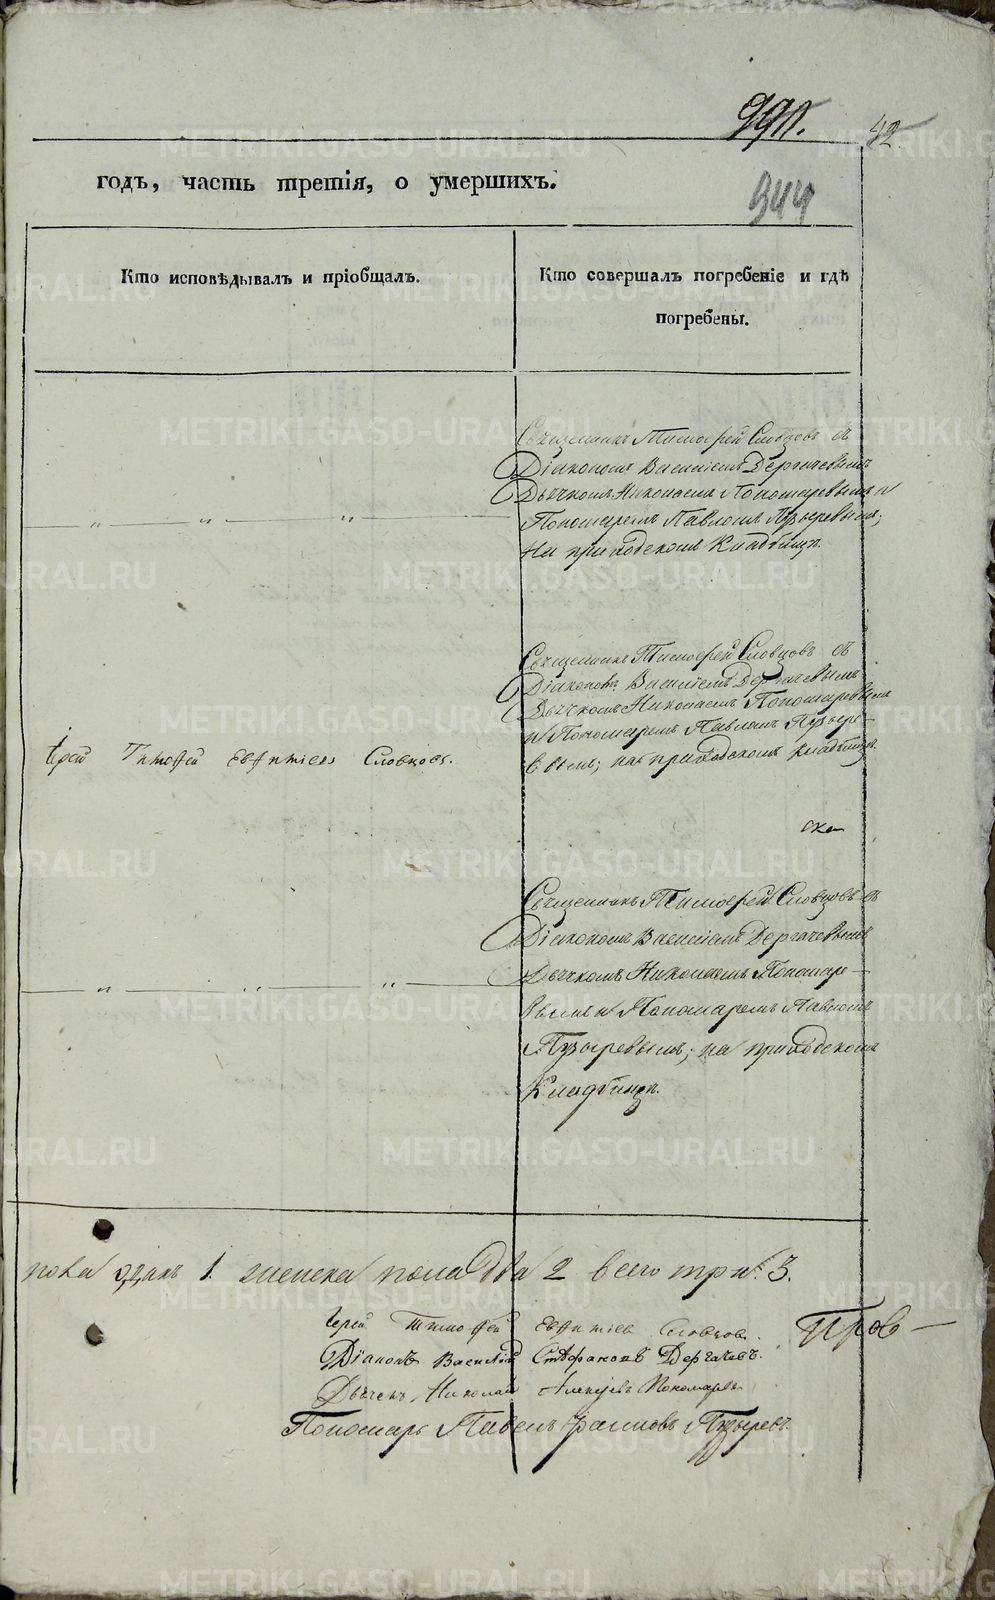 991.
42
годъ, часть третія, о умершихъ.
944
Кто исповѣдывалъ и пріобщалъ.
Кто совершалъ погребеніе и гдѣ
погребены.
Священникъ Тимофей Словцовъ съ
Діакономъ Василіемъ Дергачевымъ
Дьячкомъ Николаемъ Пономаревымъ и
Пономаремъ Павломъ Пузыревымъ;
На приходскомъ Кладбищѣ.
Іерей Тимофей Евфимiевъ Словцовъ.
Священникъ Тимофей Словцовъ съ
Діакономъ Василіемъ Дергачевымъ
Дьячкомъ Николаемъ Пономаревымъ
и Пономаремъ Павломъ Пузыре-
вымъ; на приходскомъ кладбищѣ.
Священникъ Тимофей Словцовъ съ
Діакономъ Василіемъ Дергачевымъ
Дьячкомъ Николаемъ Пономаре-
вымъ и Пономаремъ Павломъ
Пузыревымъ; на приходскомъ
Кладбищѣ.
пола одинъ 1. женска пола два 2 всего три. 3.
Іерей Тимофей Евфимiевъ Словцовъ.
Діаконъ Василій Стефановъ Дергачевъ.
Дьячекъ Николай Алексѣевъ Пономаревъ
Пономарь Павелъ Пузыревъ.
Пров-
METRIKI.GASO-URAL.RU